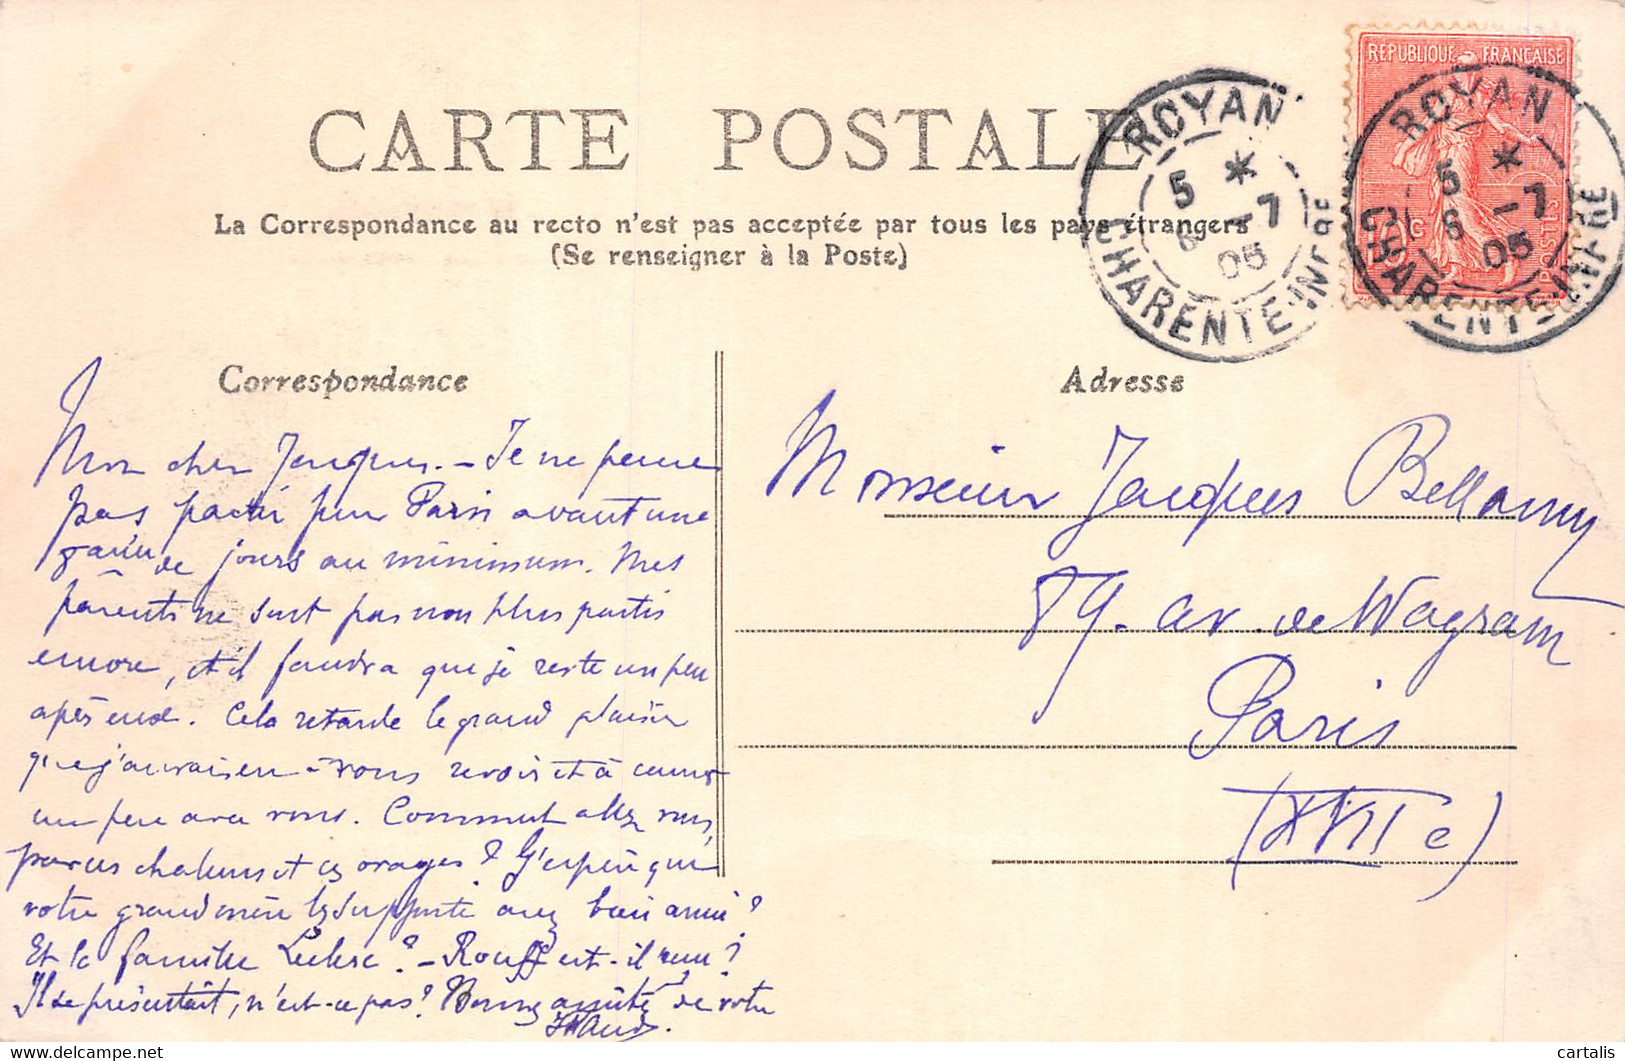 RÉPUBLIQUE FRANÇAISE
POSTES
10 C
ROYAN
5 *
6 -7
05
CHARENTE-INFRE
ROYAN
5 *
6 -7
05
CHARENTE-INFRE
CARTE POSTALE
La Correspondance au recto n'est pas acceptée par tous les pays étrangers
(Se renseigner à la Poste)
Correspondance
Adresse
Mon cher Jacques. - Je ne pense
pas partir pour Paris avant une
de jours au minimum. Mes
parents ne sont pas non plus partis
encore, et il faudra que je reste un peu
après eux. Cela retarde le grand plaisir
que j'aurais eu à vous revoir et à causer
un peu avec vous. Comment allez vous,
par ces chaleurs et ces orages ? J'espère que
votre grand mère les supporte assez bien aussi ?
Et la famille Leclerc ? - Rouff est-il reçu ?
Il se présentait, n'est-ce pas ? Bonne amitié de votre
Monsieur Jacques Bellamy
89. av. de Wagram
Paris
(XVIIe)
delcampe.net
cartalis